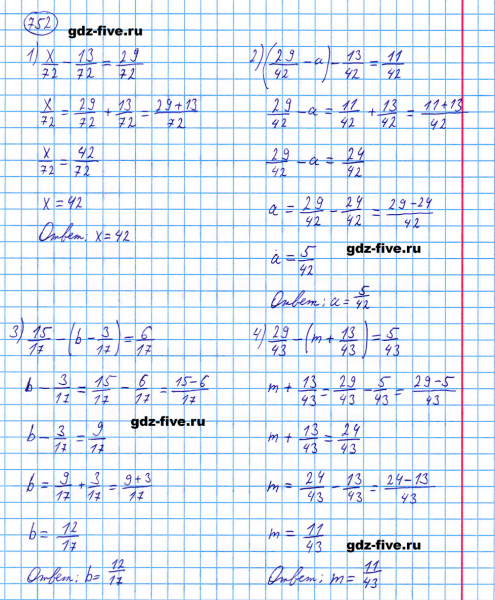 752
gdz-five.ru
1) x/72 - 13/72 = 29/72
x/72 = 29/72 + 13/72 = (29+13)/72
x/72 = 42/72
x = 42
Ответ: x = 42
2) (29/42 - a) - 13/42 = 11/42
29/42 - a = 11/42 + 13/42 = (11+13)/42
29/42 - a = 24/42
a = 29/42 - 24/42 = (29-24)/42
gdz-five.ru
a = 5/42
Ответ: a = 5/42
3) 15/17 - (b - 3/17) = 6/17
b - 3/17 = 15/17 - 6/17 = (15-6)/17
gdz-five.ru
b - 3/17 = 9/17
b = 9/17 + 3/17 = (9+3)/17
b = 12/17
Ответ: b = 12/17
4) 29/43 - (m + 13/43) = 5/43
m + 13/43 = 29/43 - 5/43 = (29-5)/43
m + 13/43 = 24/43
m = 24/43 - 13/43 = (24-13)/43
m = 11/43
gdz-five.ru
Ответ: m = 11/43